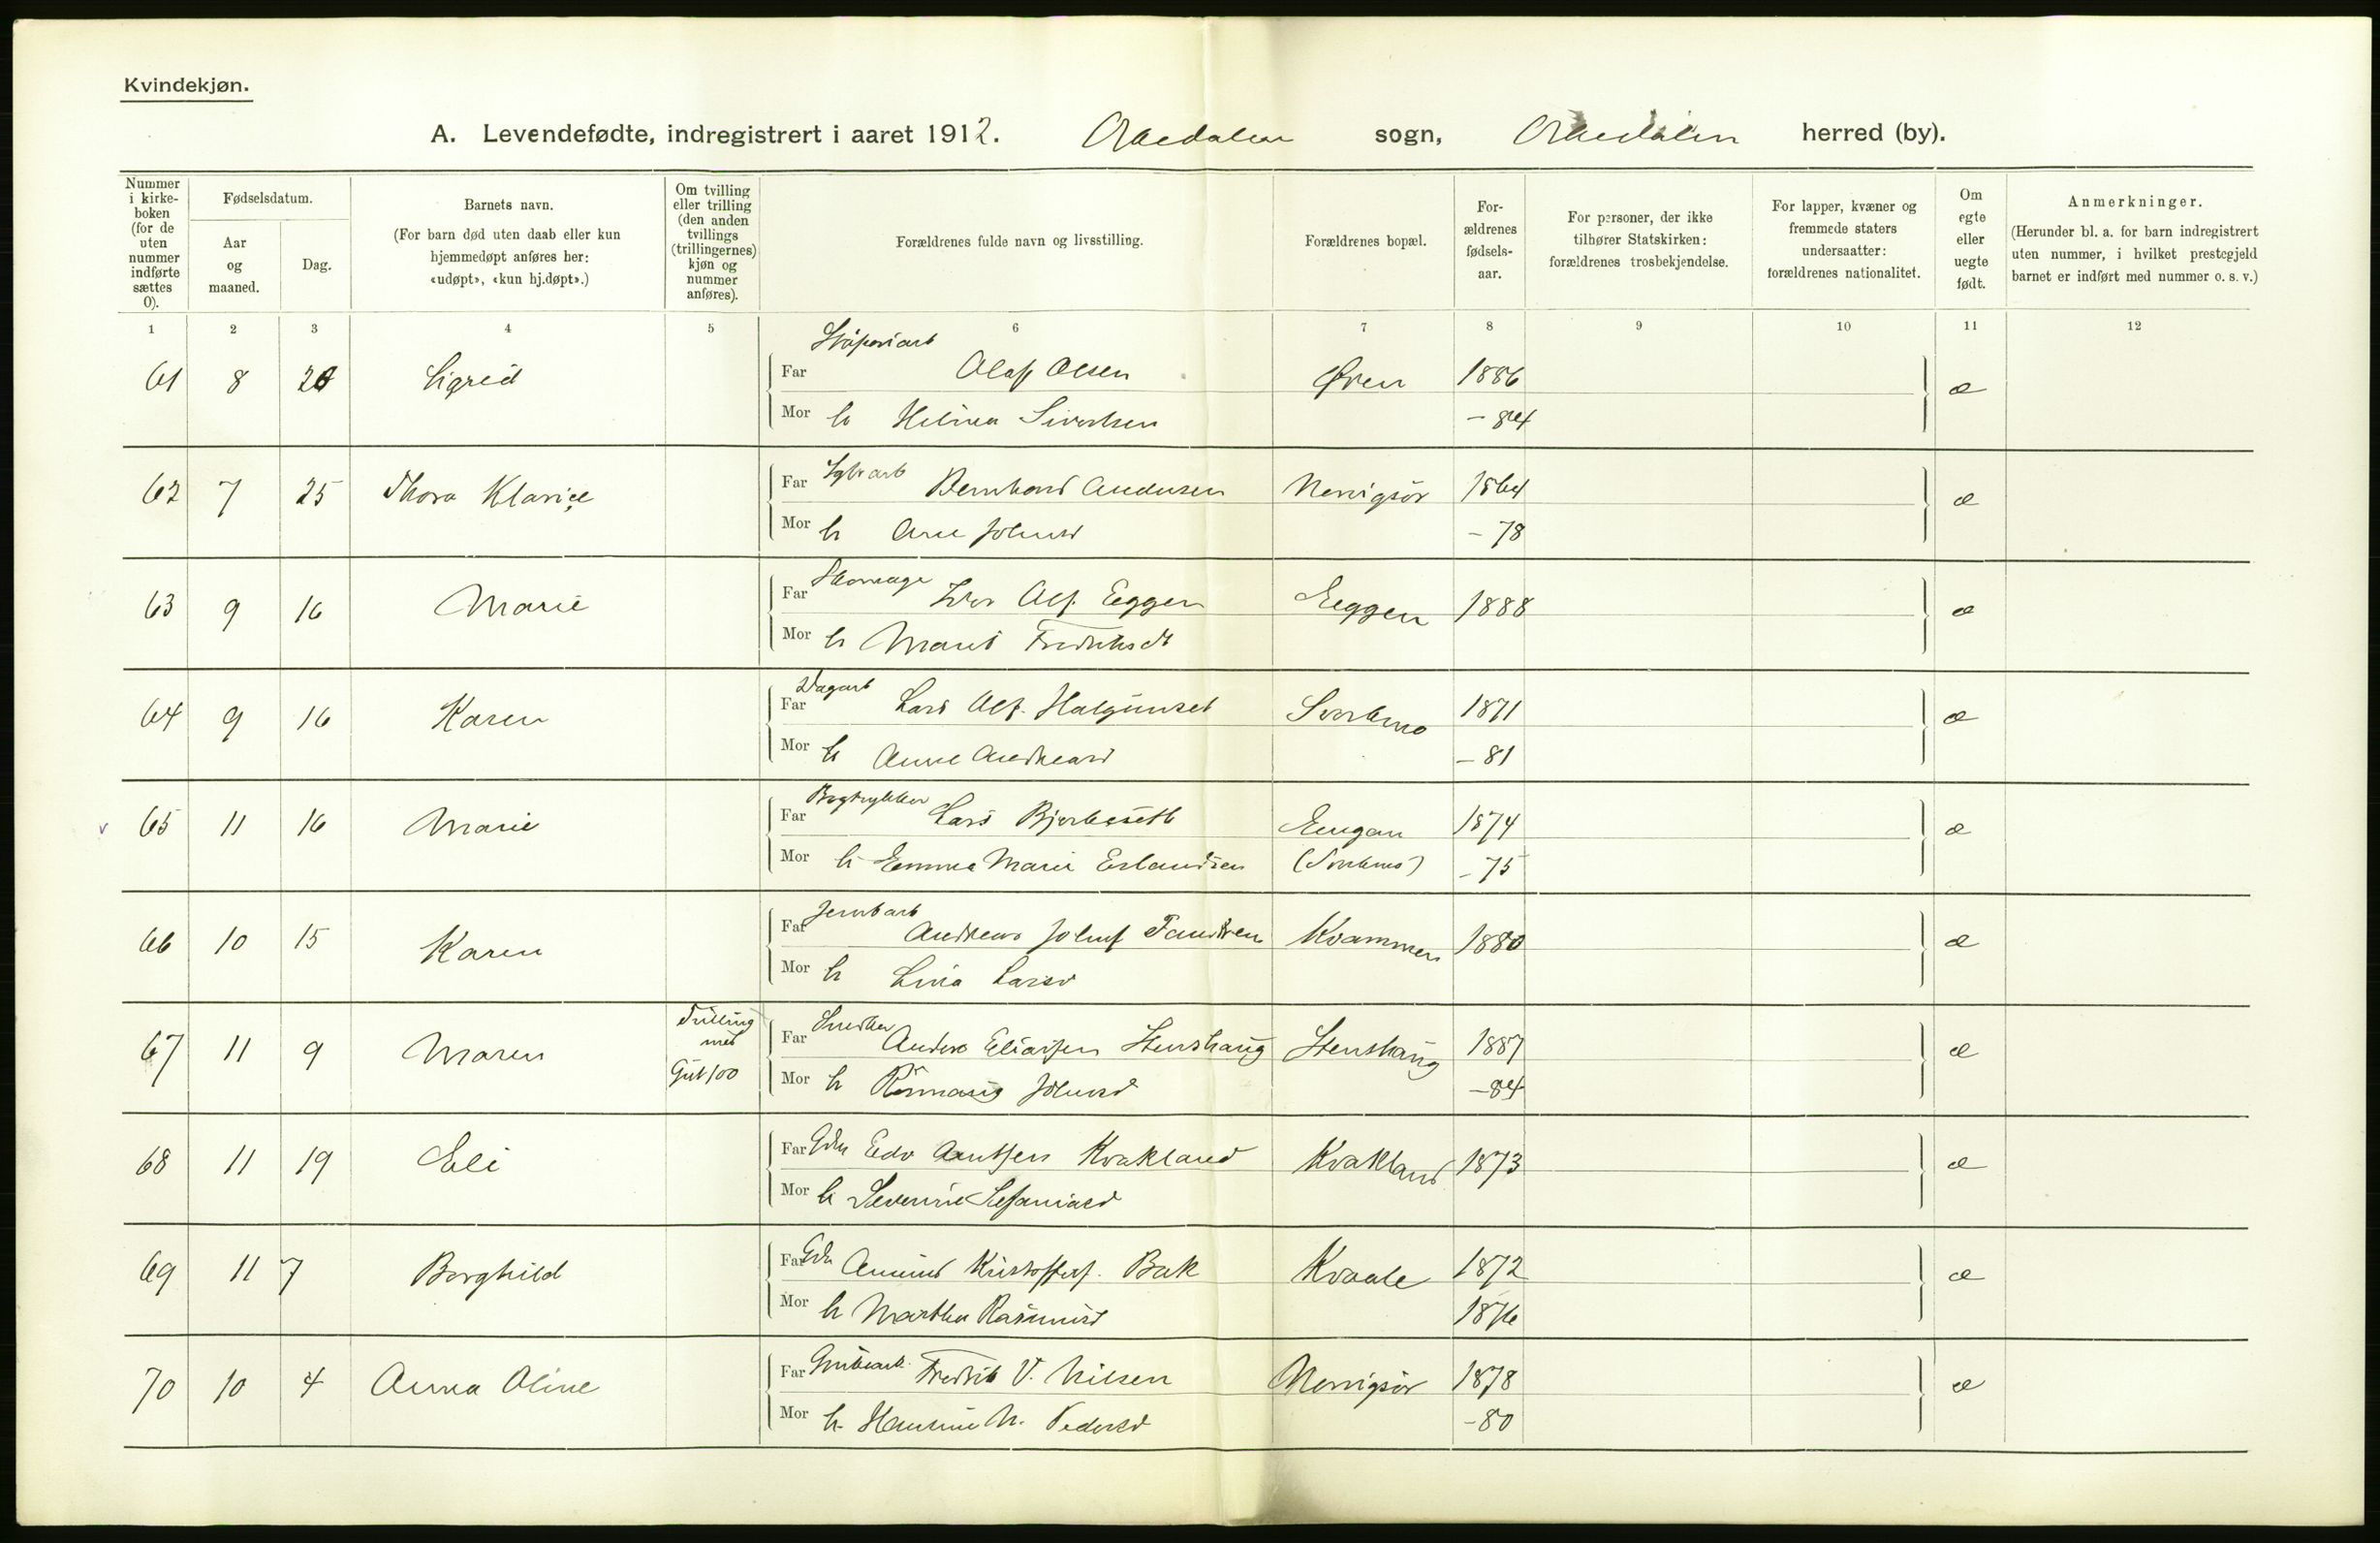 Kvindekjøn.
A. Levendefødte, indregistrert i aaret 1912. Orkedalen sogn, Orkedalen herred (by).
Nummer i kirkeboken (for de uten nummer indførte sættes 0).
Fødselsdatum.
Aar og maaned.
Dag.
Barnets navn.
(For barn død uten daab eller kun hjemmedøpt anføres her: «udøpt», «kun hj.døpt».)
Om tvilling eller trilling (den anden tvillings (trillingernes) kjøn og nummer anføres).
Forældrenes fulde navn og livsstilling.
Forældrenes bopæl.
Forældrenes fødselsaar.
For personer, der ikke tilhører Statskirken: forældrenes trosbekjendelse.
For lapper, kvæner og fremmede staters undersaatter: forældrenes nationalitet.
Om egte eller uegte født.
Anmerkninger.
(Herunder bl. a. for barn indregistrert uten nummer, i hvilket prestegjeld barnet er indført med nummer o. s. v.)
1 2 3 4 5 6 7 8 9 10 11 12
61 8 20 Sigrid Far Olaf Olsen Øren 1886 æ
Mor h Helmea Sivertsen - 84
62 7 25 Thora Klarice Far Bernhard Andersen 1864 æ
Mor h Ane Johnsd - 78
63 9 16 Marie Far Iver Olf. Eggen Eggen 1888 æ
Mor h Marit Fredriksdt
64 9 16 Karen Far Dagarb Lars Olf. Halgunset Svorkmo 1871 æ
Mor h Anne Andreasd - 81
v 65 11 16 Marie Far Bogtrykker Lars Bjerkeseth Engan 1874 æ
Mor h Emma Marie Erlandsen (Svorkmo) - 75
66 10 15 Karen Far Jernbarb Andreas Johnf Kvammen 1880 æ
Mor h Lina Larsd
67 11 9 Maren Tvilling med Gut 100 Far Snedker Anders Eliassen Stenshaug Stenshaug 1887 æ
Mor h Rønnaug Johnsd - 84
68 11 19 Eli Far Gdr Edv Arntsen Kvakland Kvakland 1873 æ
Mor h Severine Stefaniasd
69 11 7 Borghild Far Gdr Amund Kristofferf. Bak Kvaale 1872 æ
Mor h Martha Rasmusd 1876
70 10 4 Anna Oline Far Grubearb. Fredrik V. Nilsen 1878 æ
Mor h. Hansine M. Pedersd - 80